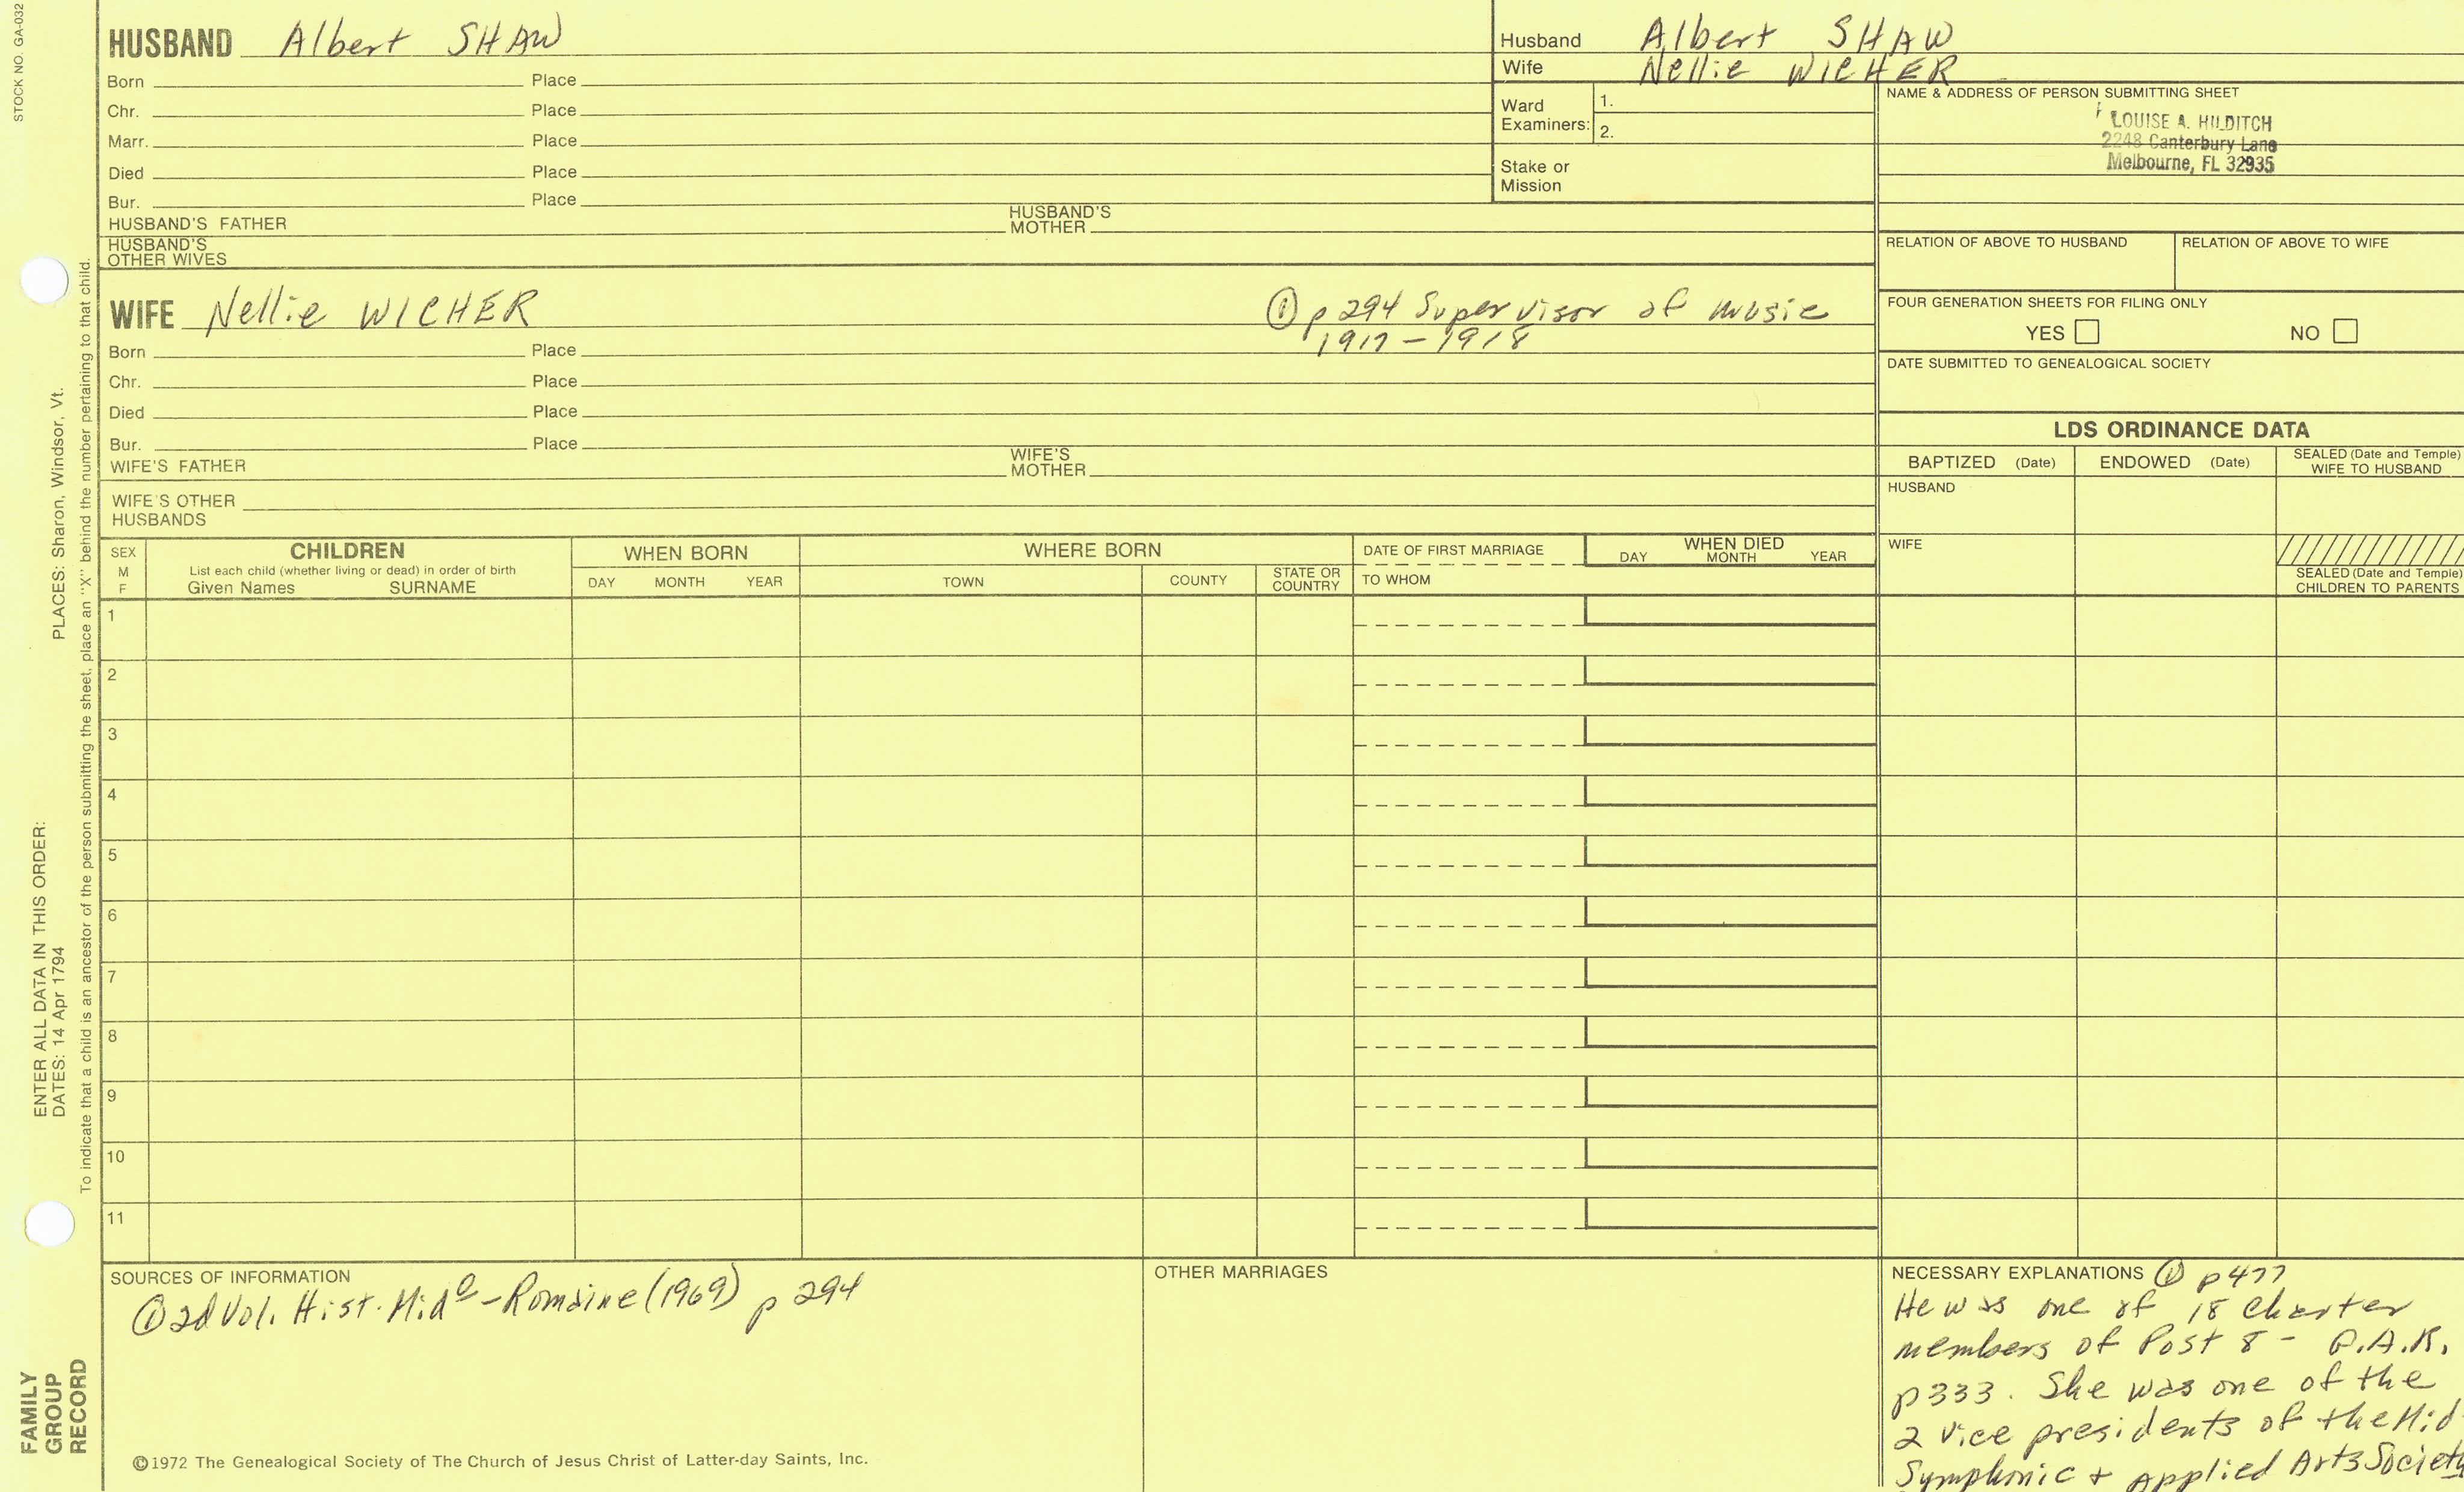 STOCK NO. GA-032
HUSBAND Albert SHAW
Born Place
Chr. Place
Marr. Place
Died Place
Bur. Place
HUSBAND'S FATHER HUSBAND'S MOTHER
HUSBAND'S OTHER WIVES
Husband Albert SHAW
Wife Nellie WICHER
Ward Examiners: 1.
2.
Stake or Mission
NAME & ADDRESS OF PERSON SUBMITTING SHEET
LOUISE A. HILDITCH
2248 Canterbury Lane
Melbourne, FL 32935
RELATION OF ABOVE TO HUSBAND RELATION OF ABOVE TO WIFE
FOUR GENERATION SHEETS FOR FILING ONLY
YES NO
DATE SUBMITTED TO GENEALOGICAL SOCIETY
WIFE Nellie WICHER ① p 294 Supervisor of music
1917 - 1918
Born Place
Chr. Place
Died Place
Bur. Place
WIFE'S FATHER WIFE'S MOTHER
WIFE'S OTHER HUSBANDS
LDS ORDINANCE DATA
BAPTIZED (Date) ENDOWED (Date) SEALED (Date and Temple) WIFE TO HUSBAND
HUSBAND
WIFE
SEALED (Date and Temple) CHILDREN TO PARENTS
SEX M F
CHILDREN
List each child (whether living or dead) in order of birth
Given Names SURNAME
WHEN BORN
DAY MONTH YEAR
WHERE BORN
TOWN COUNTY STATE OR COUNTRY
DATE OF FIRST MARRIAGE
TO WHOM
WHEN DIED
DAY MONTH YEAR
1
2
3
4
5
6
7
8
9
10
11
SOURCES OF INFORMATION
① 2d Vol. Hist. Mid° - Romaine (1969) p 294
OTHER MARRIAGES
NECESSARY EXPLANATIONS ① p 477
He was one of 18 Charter
members of Post 8 - G.A.R.
p 333. She was one of the
2 vice presidents of the Mid
Symphonic + Applied Arts Society
©1972 The Genealogical Society of The Church of Jesus Christ of Latter-day Saints, Inc.
ENTER ALL DATA IN THIS ORDER:
DATES: 14 Apr 1794 PLACES: Sharon, Windsor, Vt.
To indicate that a child is an ancestor of the person submitting the sheet, place an "X" behind the number pertaining to that child.
FAMILY
GROUP
RECORD